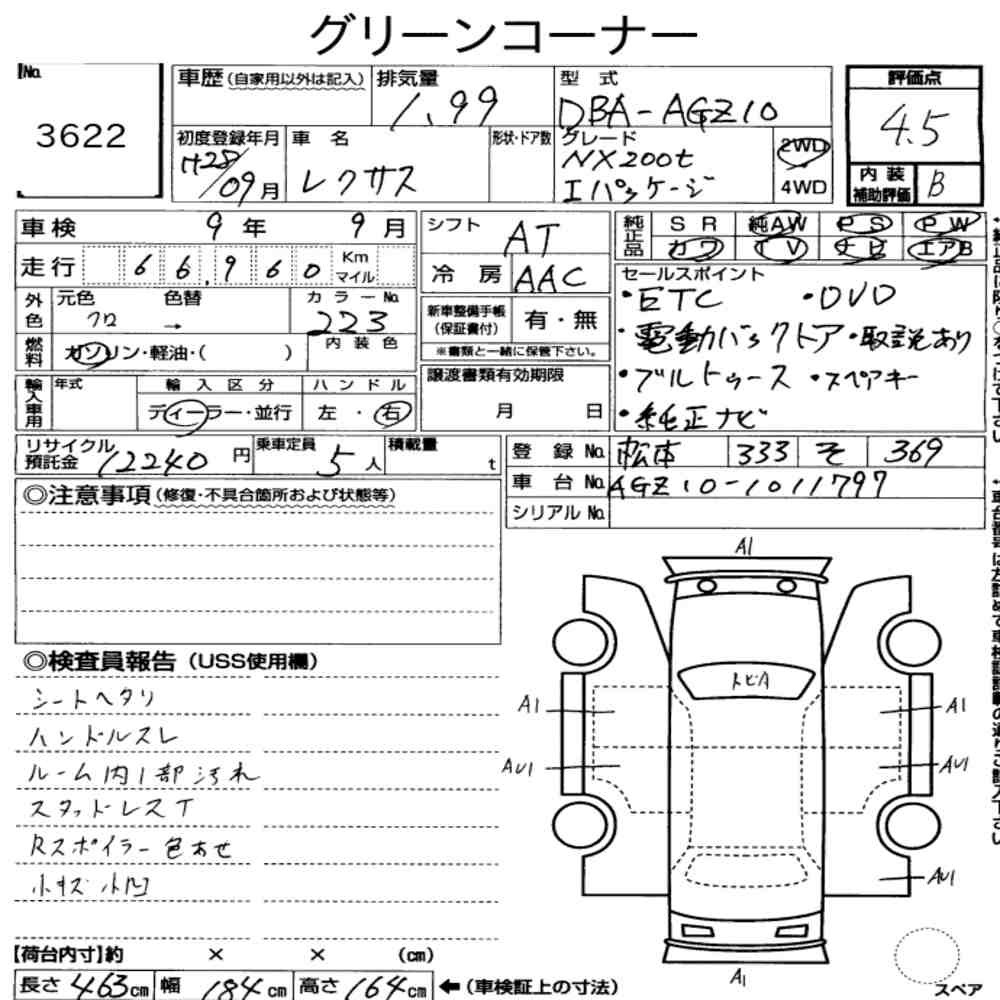 グリーンコーナー
No.
3622
車歴(自家用以外は記入)
排気量
1.99
型 式
DBA-AGZ10
評価点
4.5
内装補助評価 B
初度登録年月
H28/09月
車 名
レクサス
形状・ドア数
グレード
NX200t
Iパッケージ
2WD
4WD
車検 9年 9月
走行 66,960 Km マイル
外色 元色 クロ 色替 → カラーNo. 223
燃料 ガソリン・軽油・( ) 内装色
輸入車用 年式 輸入区分 ディーラー・並行 ハンドル 左・右
シフト AT
冷 房 AAC
新車整備手帳(保証書付) 有・無
※書類と一緒に保管下さい。
譲渡書類有効期限
月 日
純正品 SR 純AW PS PW
カワ TV ナビ エアB
セールスポイント
・ETC ・DVD
・電動バックドア・取説あり
・ブルトゥース ・スペアキー
・純正ナビ
リサイクル預託金 12240円 乗車定員 5人 積載量 t
登 録 No. 松本 333 そ 369
車 台 No. AGZ10-1011797
シリアル No.
◎注意事項(修復・不具合箇所および状態等)
◎検査員報告(USS使用欄)
シートヘタリ
ハンドルスレ
ルーム内1部汚れ
スタッドレスT
Rスポイラー色あせ
小キズ小凹
A1
トビA
A1 A1
AU1 AU1
AU1
A1
スペア
【荷台内寸】約 × × (cm)
長さ 463cm 幅 184cm 高さ 164cm ←(車検証上の寸法)